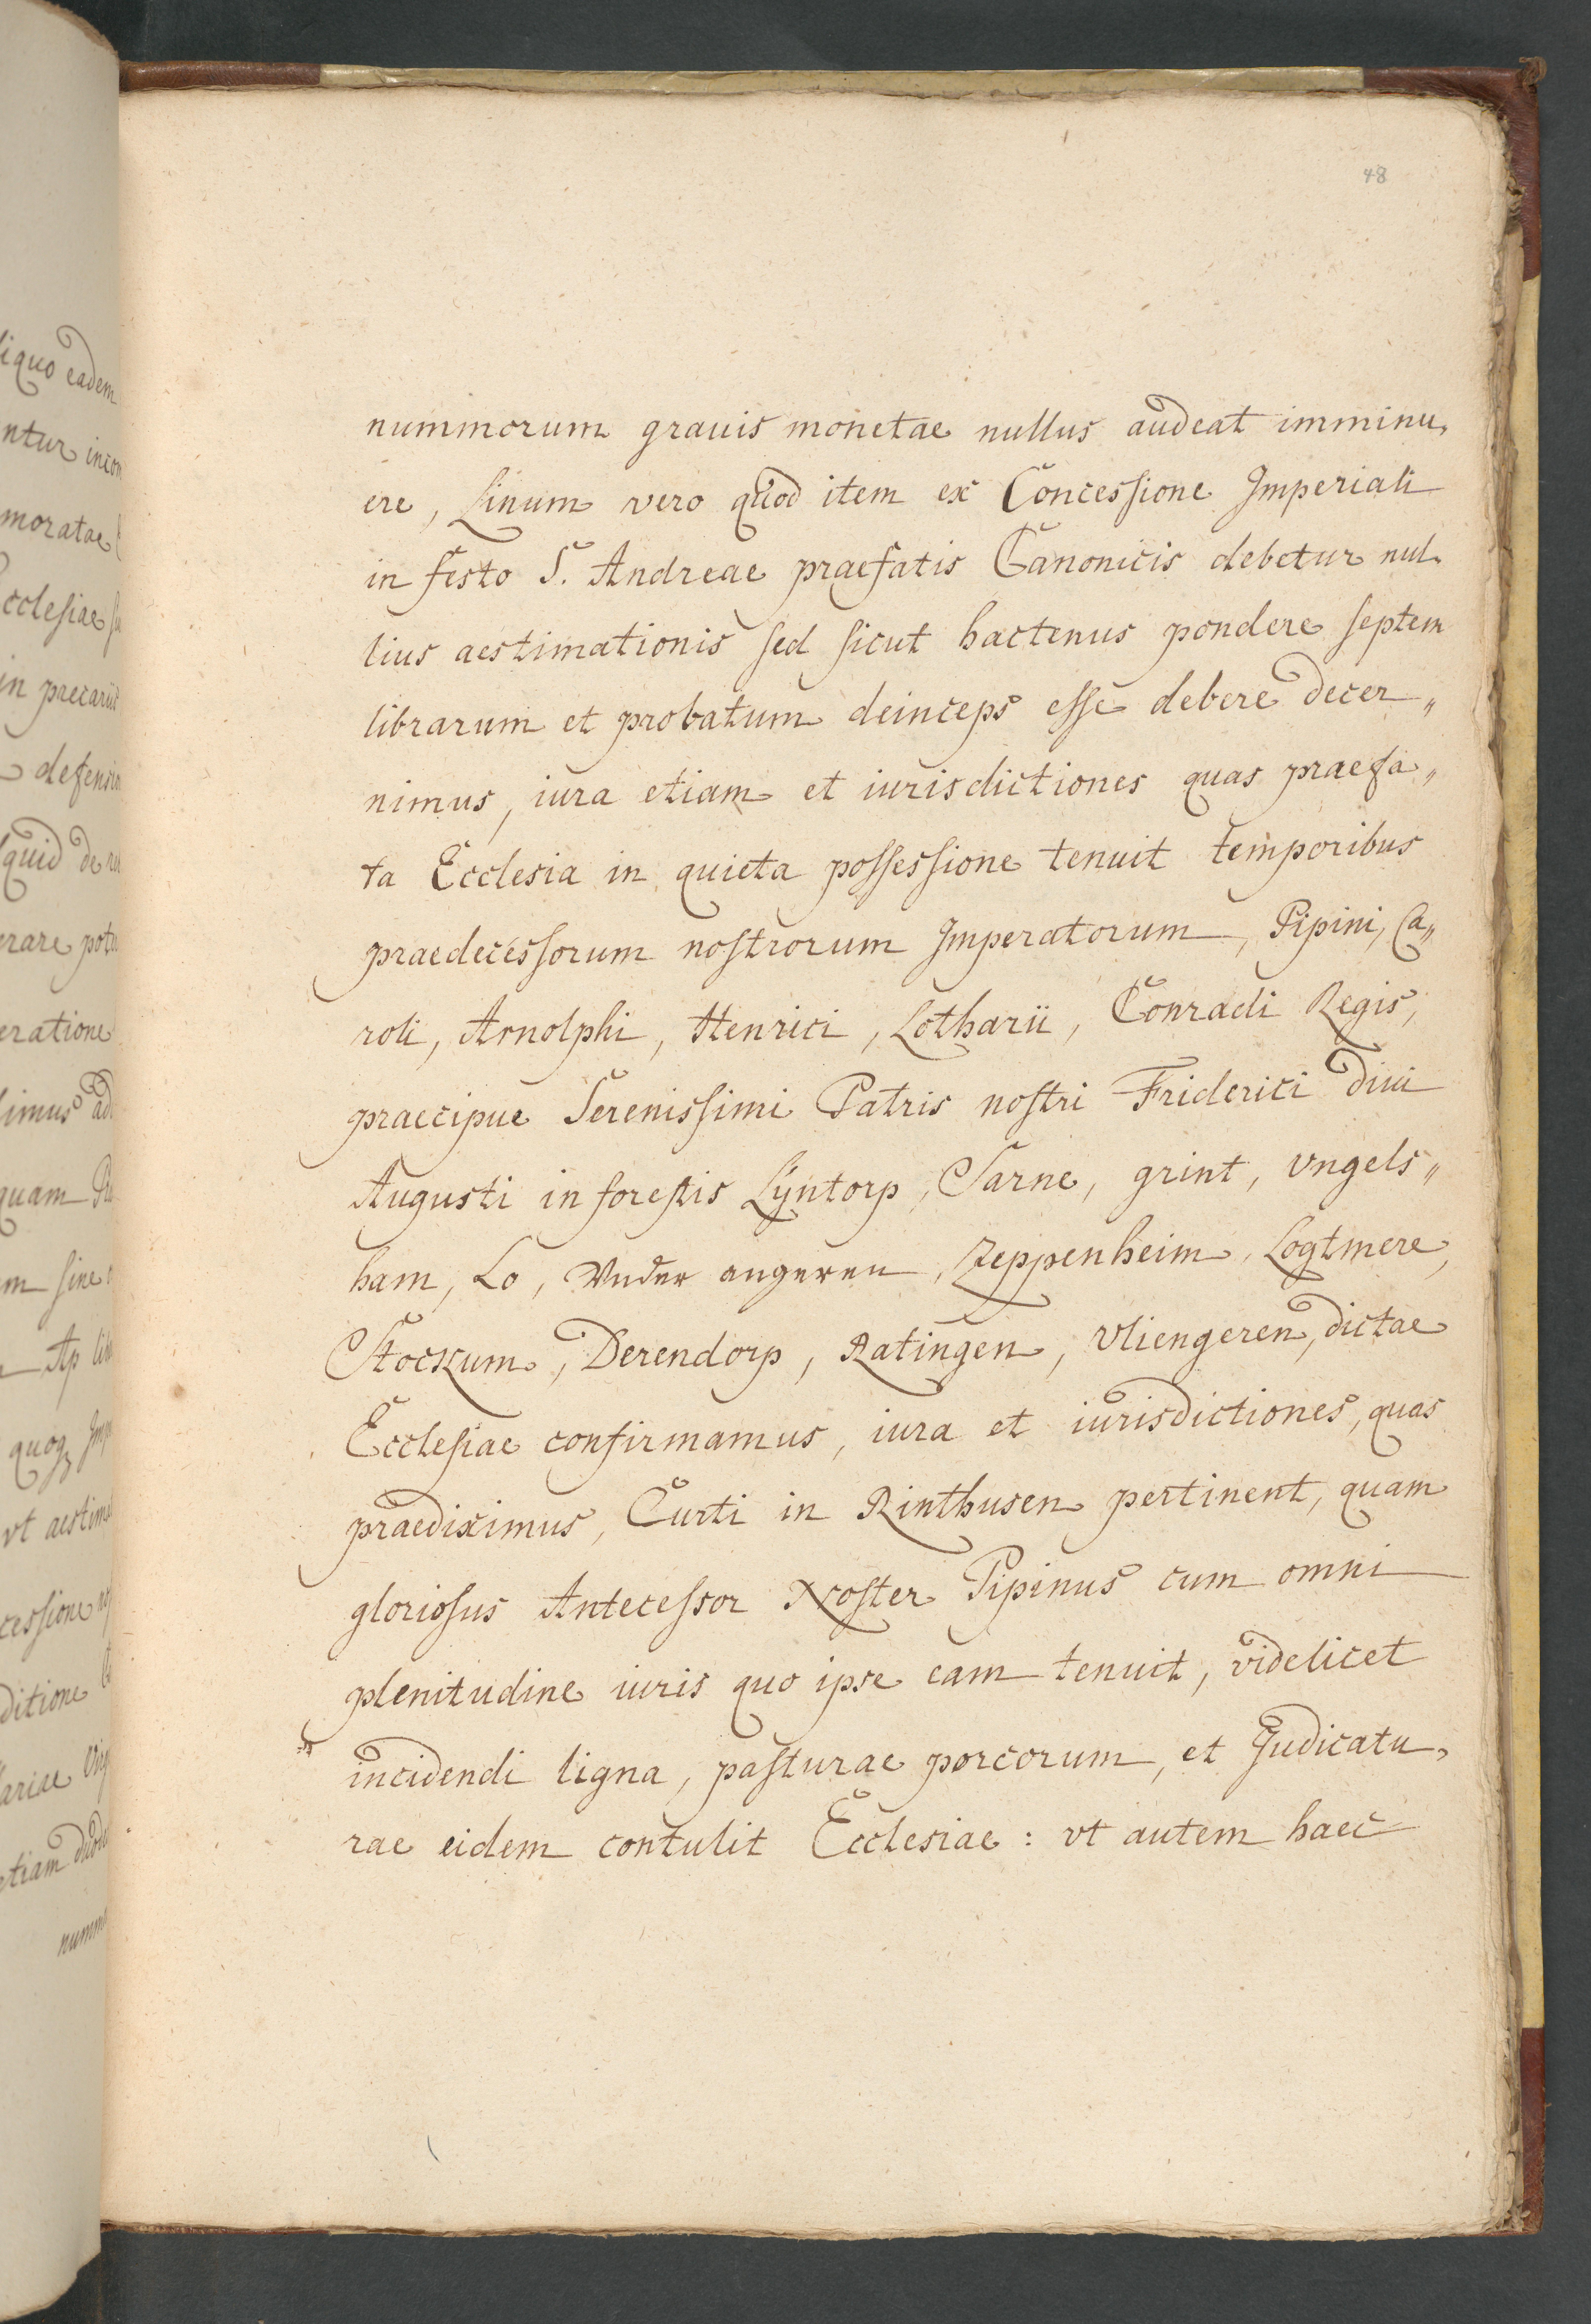 48
nummorum grauis monetae nullus audeat imminu,
ere, Linum vero quod item ex Concessione Imperiali
in festo S. Andreae praefatis Canonicis debetur nul-
lius aestimationis sed sicut hactenus pondere septem
librarum et probatum deinceps esse debere decer„
nimus, iura etiam et iurisdictiones quas praefa„
ta Ecclesia in quieta possessione tenuit temporibus
praedecessorum nostrorum Imperatorum, Pipini, Ca„
roli, Arnolphi, Henrici, Lotharii, Conradi Regis,
praecipue Serenissimi Patris nostri Friderici diui
Augusti in forestis Lÿntorp, Sarne, grint, vngels„
ham, Lo, Vnder angeren, Zeppenheim, Logtmere,
Stockum, Derendorp, Ratingen, Vliengeren, dictae
Ecclesiae confirmamus, iura et iurisdictiones, quas
praediximus, Curti in Rinthusen pertinent, quam
gloriosus Antecessor Noster Pipinus cum omni
plenitudine iuris quo ipse eam tenuit, videlicet
incidendi ligna, pasturae porcorum, et Judicatu,
rae eidem contulit Ecclesiae: vt autem haec